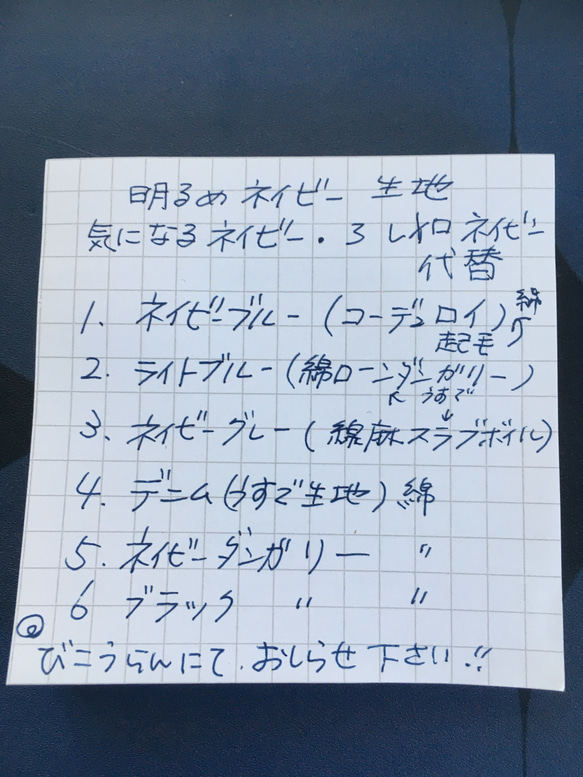 明るめネイビー 生地
気になるネイビー・3 しわネイビー
代替
1. ネイビーブルー(コーデュロイ)綿
起毛
2. ライトブルー(綿ローンダンガリー)
うすで
3. ネイビーグレー(綿麻スラブボイル)
4. デニム(うすで生地)綿
5. ネイビーダンガリー 〃
6 ブラック 〃 〃
びこうらんにて、おしらせ下さい!!